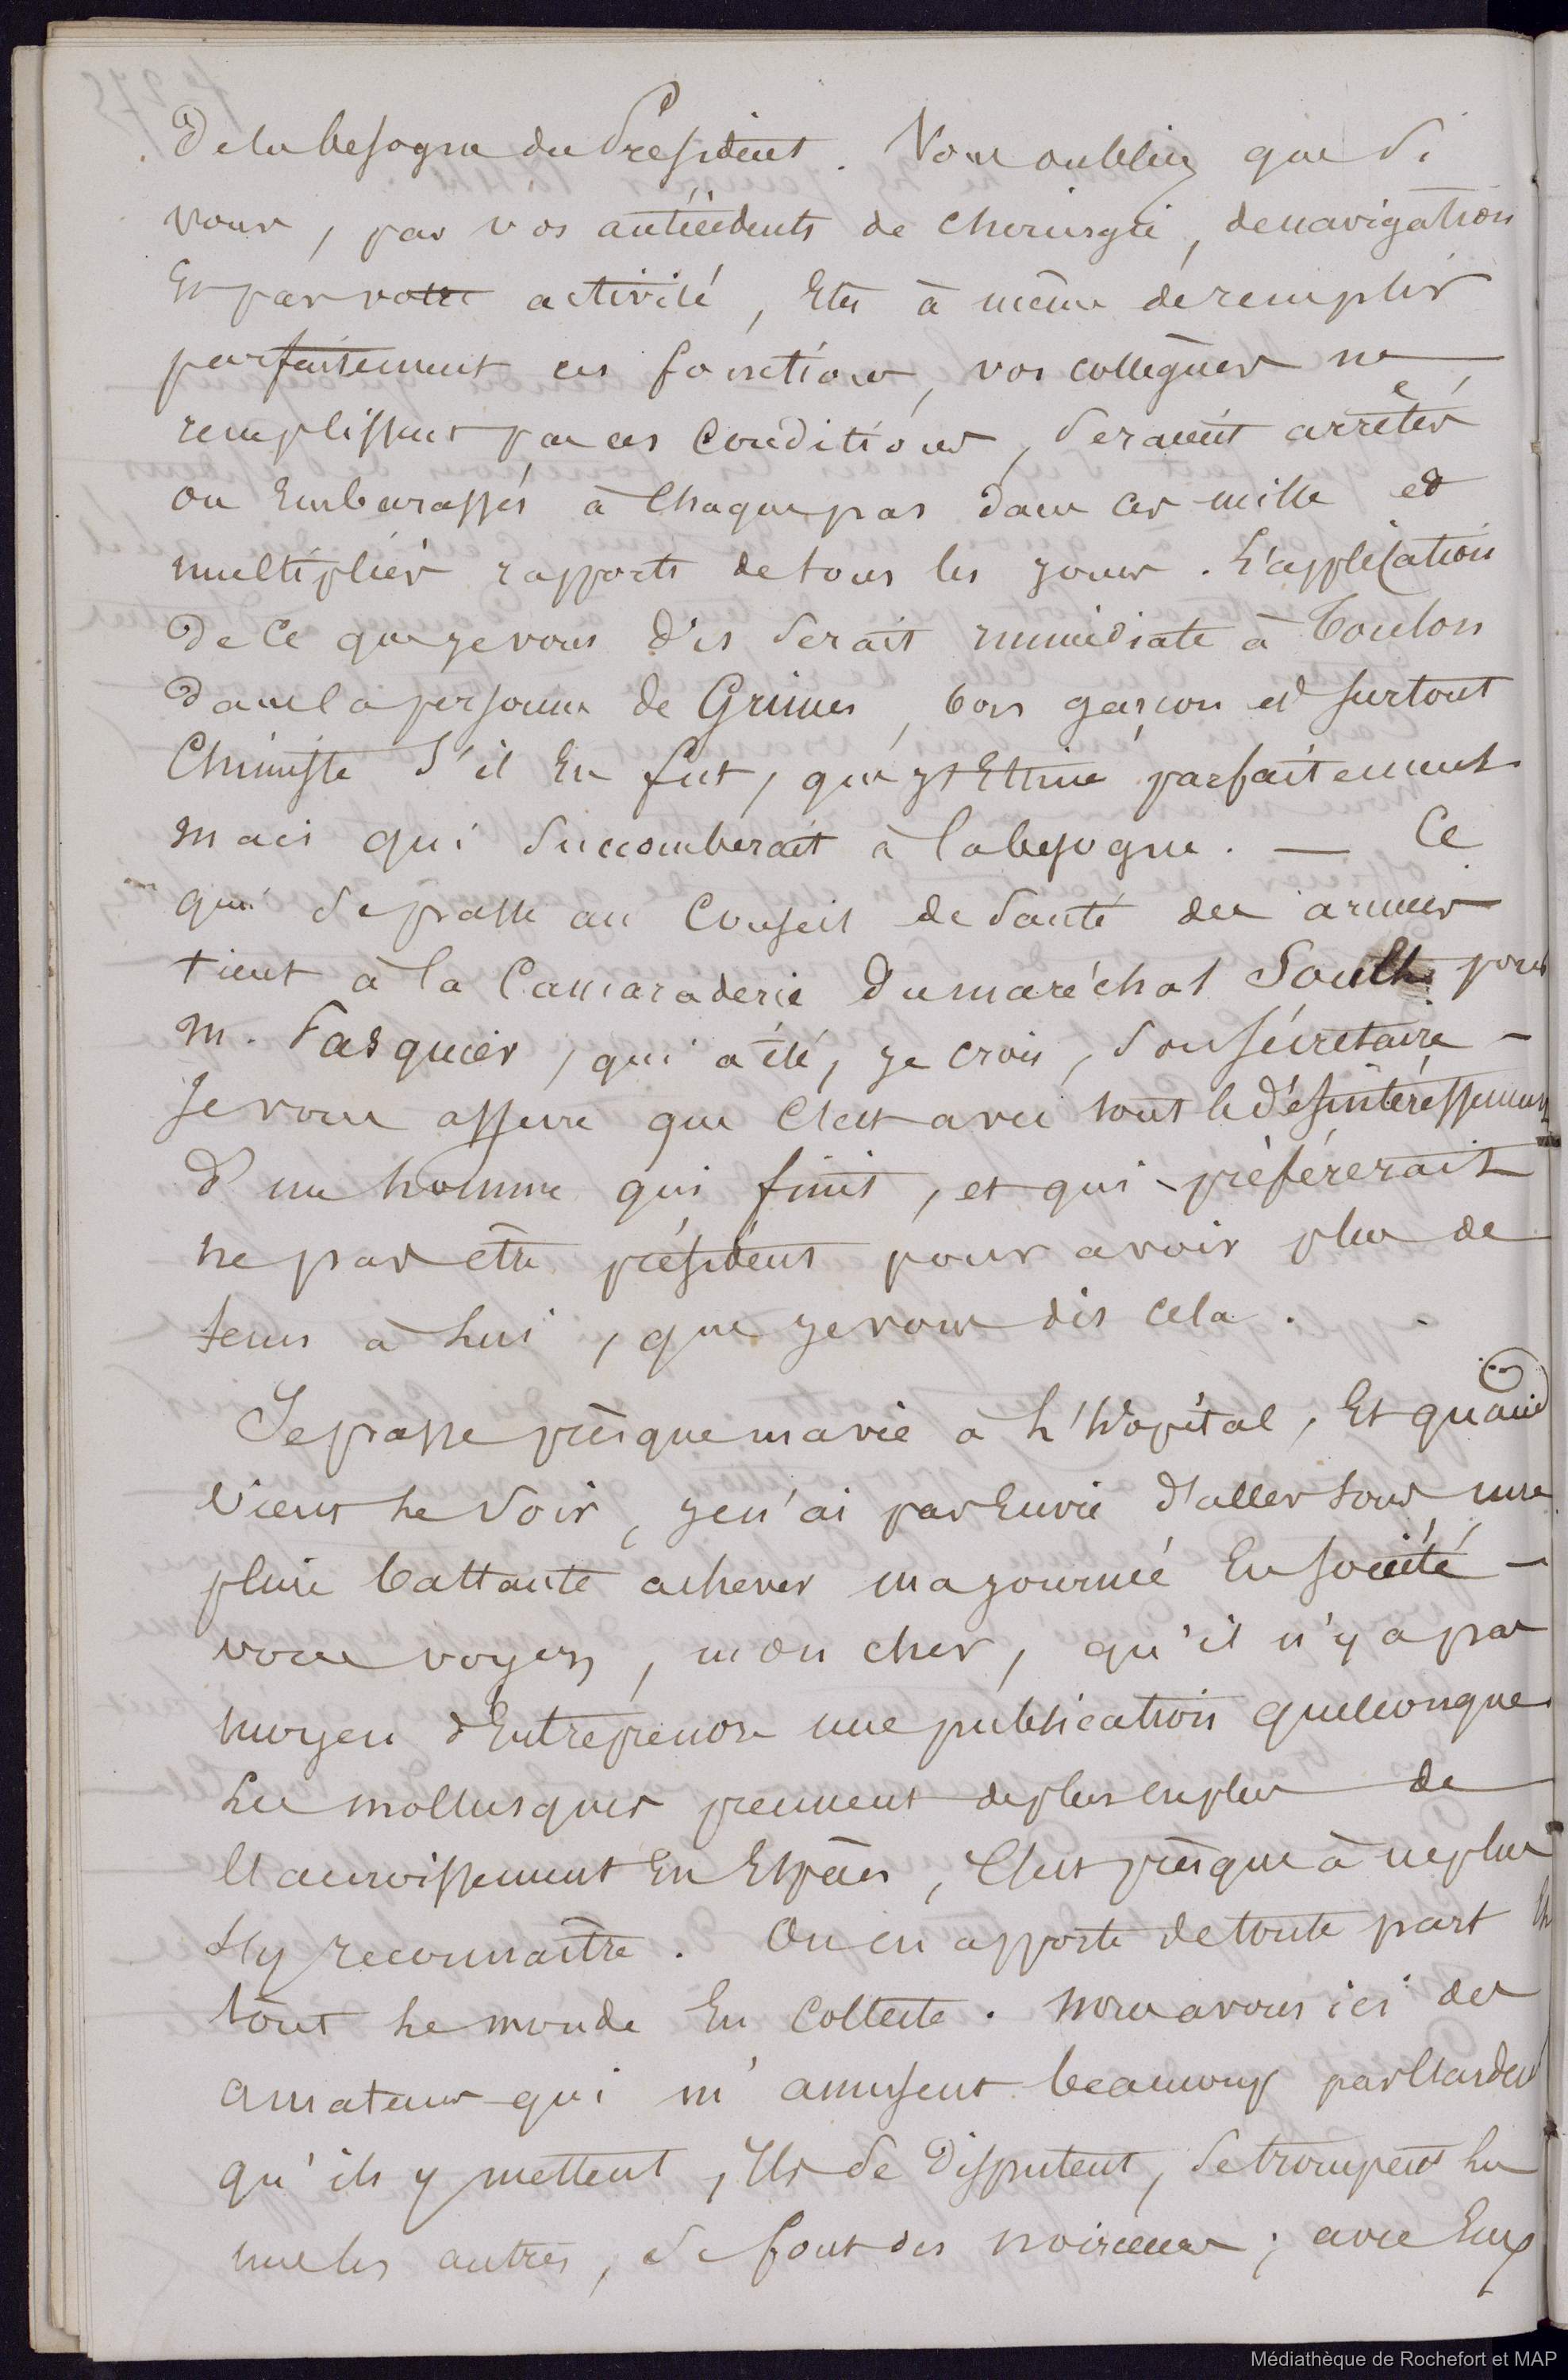 De la besogne du Président. Vous oubliez que Si
vous, par vos antécédents de chirurgie, de navigation
Et par votre activité, Etes à même de remplir
parfaitement ces fonctions, vos collègues ne
remplissent pas ces Conditions, Seraient arrêtés
ou Embarassés à Chaque pas dans ces mille et
multipliés rapports de tous les jours. L'application
De Ce que je vous dis Serait immédiate à Toulon
Dans la personne de Grimes, bon garçon et surtout
Chimiste S'il En fut, que j'Estime parfaitement
mais qui Succomberait à la besogne. — Ce
qui Se passe au Conseil de Santé des armées
tient à la Camaraderie du maréchal Soult pour
M. Pasquier, qui a été, je crois, Son Sécretaire –
Je vous assure que C'est avec tout le désintéressement
d'un homme qui finit, et qui préférerait
ne pas être président pour avoir plus de
tems à lui, que je vous dis cela.
Je passe présque ma vie à l'hôpital, Et quand
Vient le Soir, je n'ai pas Envie d'aller sous une
pluie battante achever ma journée En société –
vous voyez, mon cher, qu'il n'y a pas
moyen d'Entreprendre une publication quelconque
Les mollusques prennent de plus en plus de
l'accroissement En Espèces, C'est présque à ne plus
s'y reconnaître. On en apporte de toute part Et
tout le monde En Collecte. Nous avons ici des
amateurs qui m'amusent beaucoup par l'ardeur
qu'ils y mettent, Ils Se Disputent, Se trompent les
uns les autres, Se font des noirceurs; avec Eux
Médiathèque de Rochefort et MAP